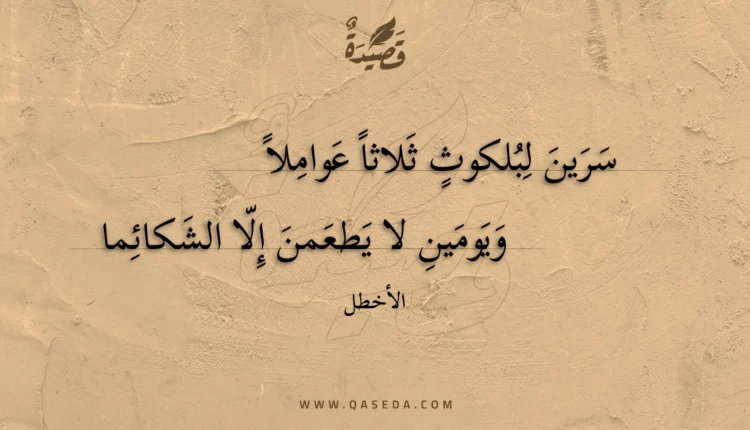 قَصِيدَةٌ
سَرَينَ لِبُلكوثٍ ثَلاثاً عَوامِلاً
وَيَومَينِ لا يَطعَمنَ إِلّا الشَكائِما
الأخطل
WWW.QASEDA.COM